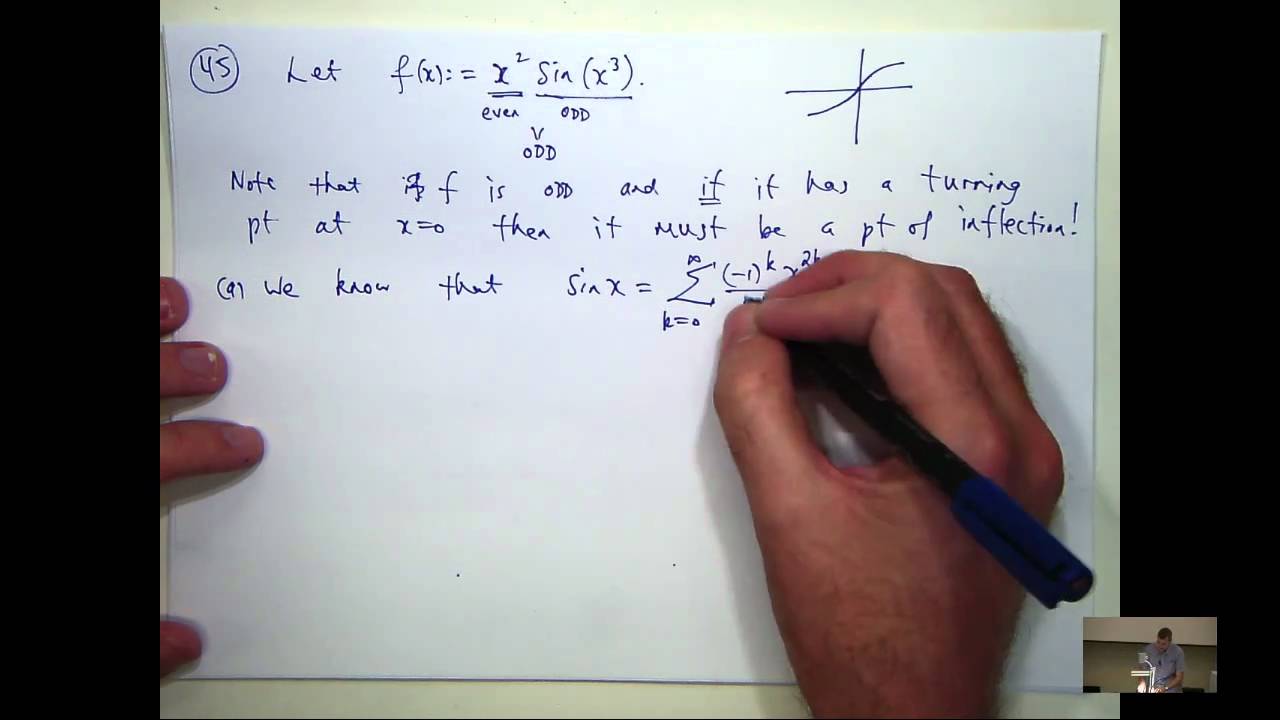 45 Let f(x) := x² sin(x³).
even ODD
ODD
Note that f is ODD and if it has a turning
pt at x=0 then it must be a pt of inflection!
(a) We know that sin x = ∑ k=0 ∞ (-1)^k x^2k